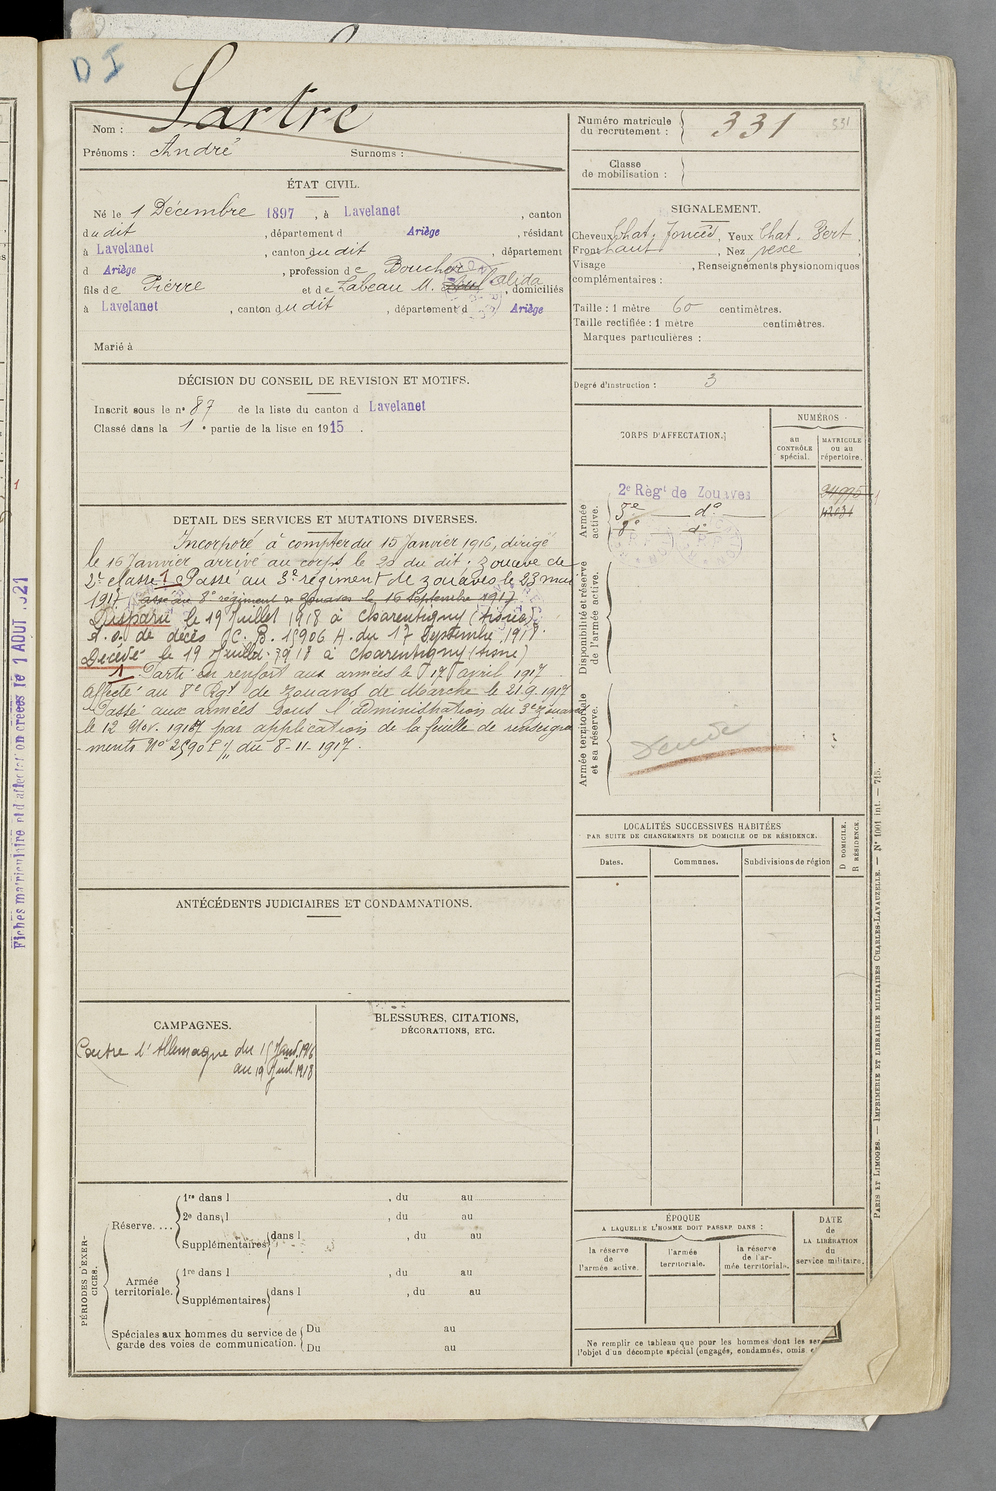 D I
Nom : Sartre
Prénoms : André Surnoms :
Numéro matricule
du recrutement : 331
331
Classe
de mobilisation :
ÉTAT CIVIL.
Né le 1 Décembre 1897, à Lavelanet, canton
du dit, département d Ariège, résidant
à Lavelanet, canton du dit, département
d Ariège, profession de Boucher
fils de Pierre et de Labeau M. Salida, domiciliés
à Lavelanet, canton du dit, département d Ariège
Marié à
SIGNALEMENT.
Cheveux Chat. foncés, Yeux Chat. Vert,
Front haut, Nez vexe
Visage , Renseignements physionomiques
complémentaires :
Taille : 1 mètre 60 centimètres.
Taille rectifiée : 1 mètre centimètres.
Marques particulières :
Degré d'instruction : 3
DÉCISION DU CONSEIL DE REVISION ET MOTIFS.
Inscrit sous le nº 87 de la liste du canton d Lavelanet
Classé dans la 1e partie de la liste en 1915.
CORPS D'AFFECTATION.
NUMÉROS
AU
CONTRÔLE
spécial.
MATRICULE
ou au
répertoire.
Armée
active.
2e Régt de Zouaves
3e dº
8e dº
24995
Disponibilité et réserve
de l'armée active.
Armée territoriale
et sa réserve.
DETAIL DES SERVICES ET MUTATIONS DIVERSES.
Incorporé à compter du 15 Janvier 1916, dirigé
le 15 Janvier, arrivé au corps le 20 du dit ; zouave de
2e classe. 1 Passé au 3e régiment de zouaves le 23 mai
1917 passé au 8e régiment de zouaves le 16 Septembre 1917
Disparu le 19 Juillet 1918 à Charentigny (Aisne)
A. o. de décès C. B. 15906 H. du 17 Septembre 1918.
Décédé le 19 Juillet 1918 à Charentigny (Aisne)
1 Parti en renfort aux armées le 17 avril 1917
Affecté au 8e Rgt de Zouaves de Marche le 21.9.1917
Passé aux armées sous l'administration du 3e Zouaves
le 12 Nov. 1917 par application de la feuille de renseigne
-ments Nº 2590 du 8-11-1917.
LOCALITÉS SUCCESSIVES HABITÉES
PAR SUITE DE CHANGEMENTS DE DOMICILE OU DE RÉSIDENCE.
Dates. Communes. Subdivisions de région
D DOMICILE.
R RÉSIDENCE.
ANTÉCÉDENTS JUDICIAIRES ET CONDAMNATIONS.
CAMPAGNES.
Contre l'Allemagne du 15 Janv. 1916
au 19 Juil. 1918
BLESSURES, CITATIONS,
DÉCORATIONS, ETC.
PÉRIODES D'EXER-
CICES.
Réserve....
1re dans l , du au
2e dans l , du au
Supplémentaires dans l , du au
Armée
territoriale.
1re dans l , du au
Supplémentaires dans l , du au
Spéciales aux hommes du service de
garde des voies de communication.
Du au
Du au
ÉPOQUE
A LAQUELLE L'HOMME DOIT PASSER DANS :
la réserve
de
l'armée active.
l'armée
territoriale.
la réserve
de l'ar-
mée territoriale.
DATE
de
LA LIBÉRATION
du
service militaire.
Ne remplir ce tableau que pour les hommes dont les ser
l'objet d'un décompte spécial (engagés, condamnés, omis
PARIS ET LIMOGES. — IMPRIMERIE ET LIBRAIRIE MILITAIRES CHARLES-LAVAUZELLE. — Nº 1001 int. — 715.
Fiches matriculaire et d'affectation créées le 1 AOUT 1921